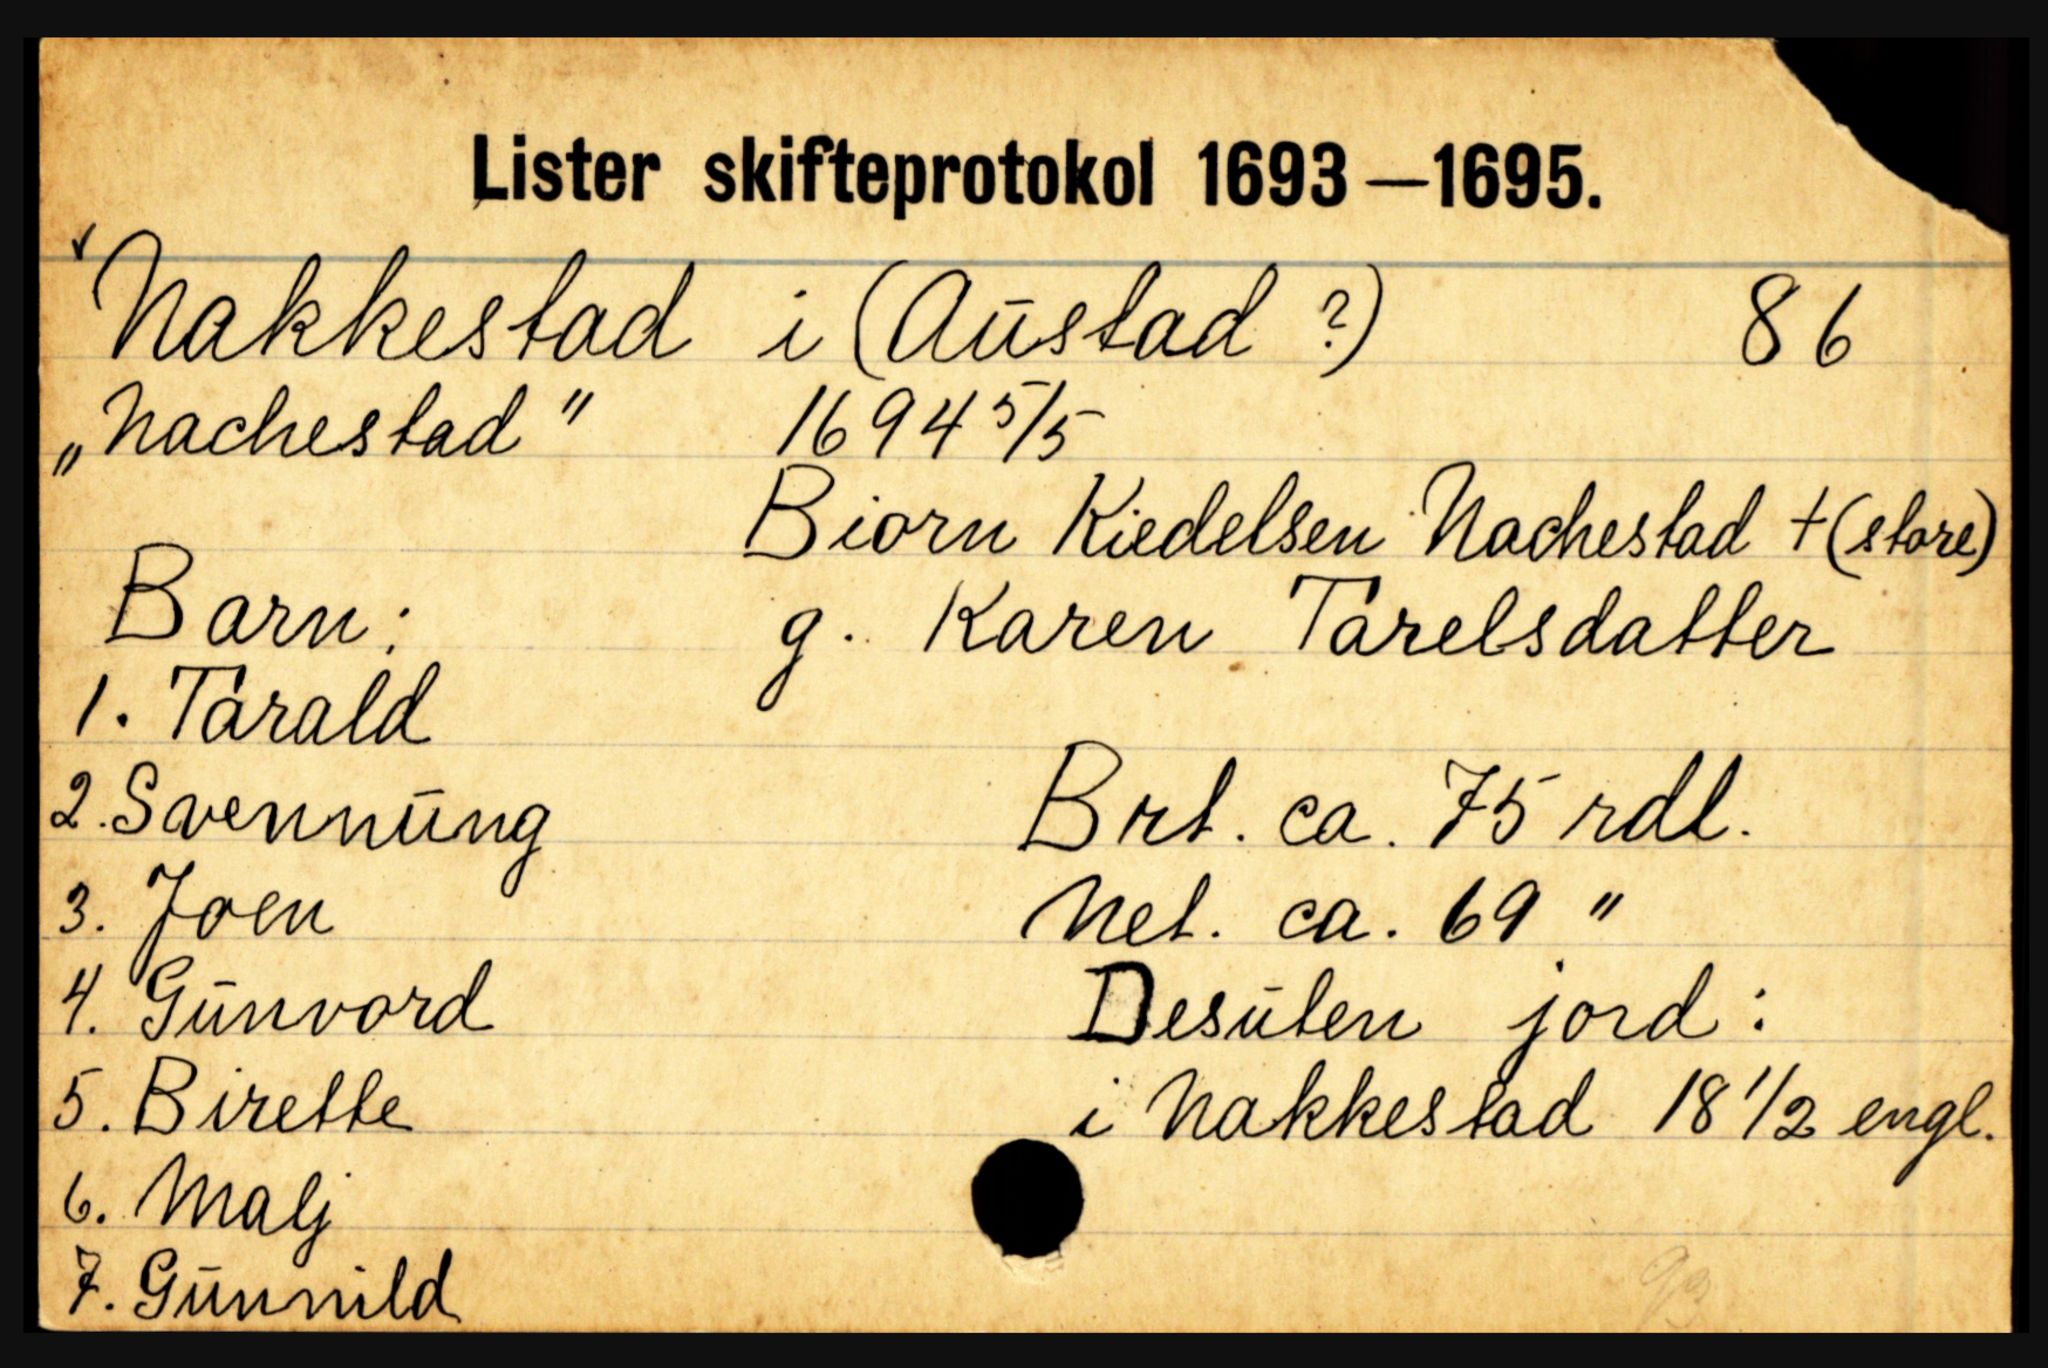 Lister skifteprotokol 1693—1695.
Nakkestad i (Austad ?) 86
„Nachestad" 1694 5/5
Biorn Kiedelsen Nachestad † (store)
Barn: g. Karen Tarelsdatter
1. Tarald
2. Svennung Brt. ca. 75 rdl.
3. Joen Net. ca. 69 "
4. Gunvord Desuten jord:
5. Birette i Nakkestad 18 1/2 engl.
6. Malj
7. Gunnild